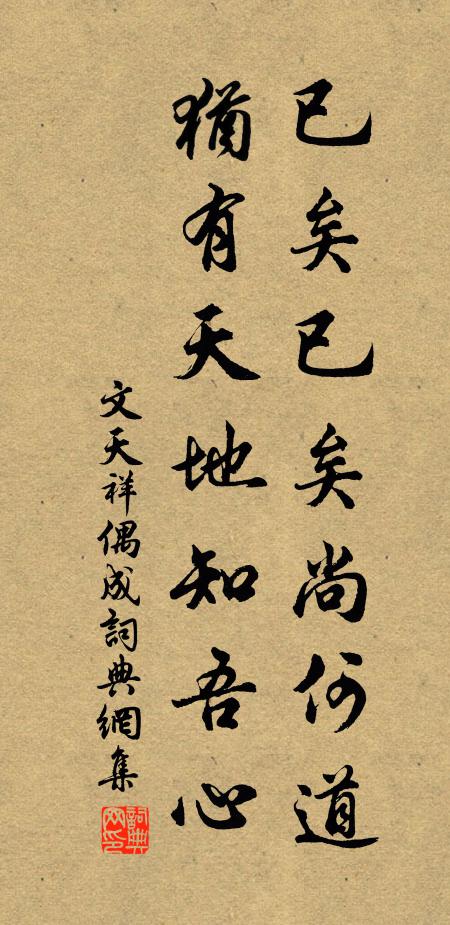 已矣已矣尚何道
猶有天地知吾心
文天祥偶成詞典網集
詞典网印